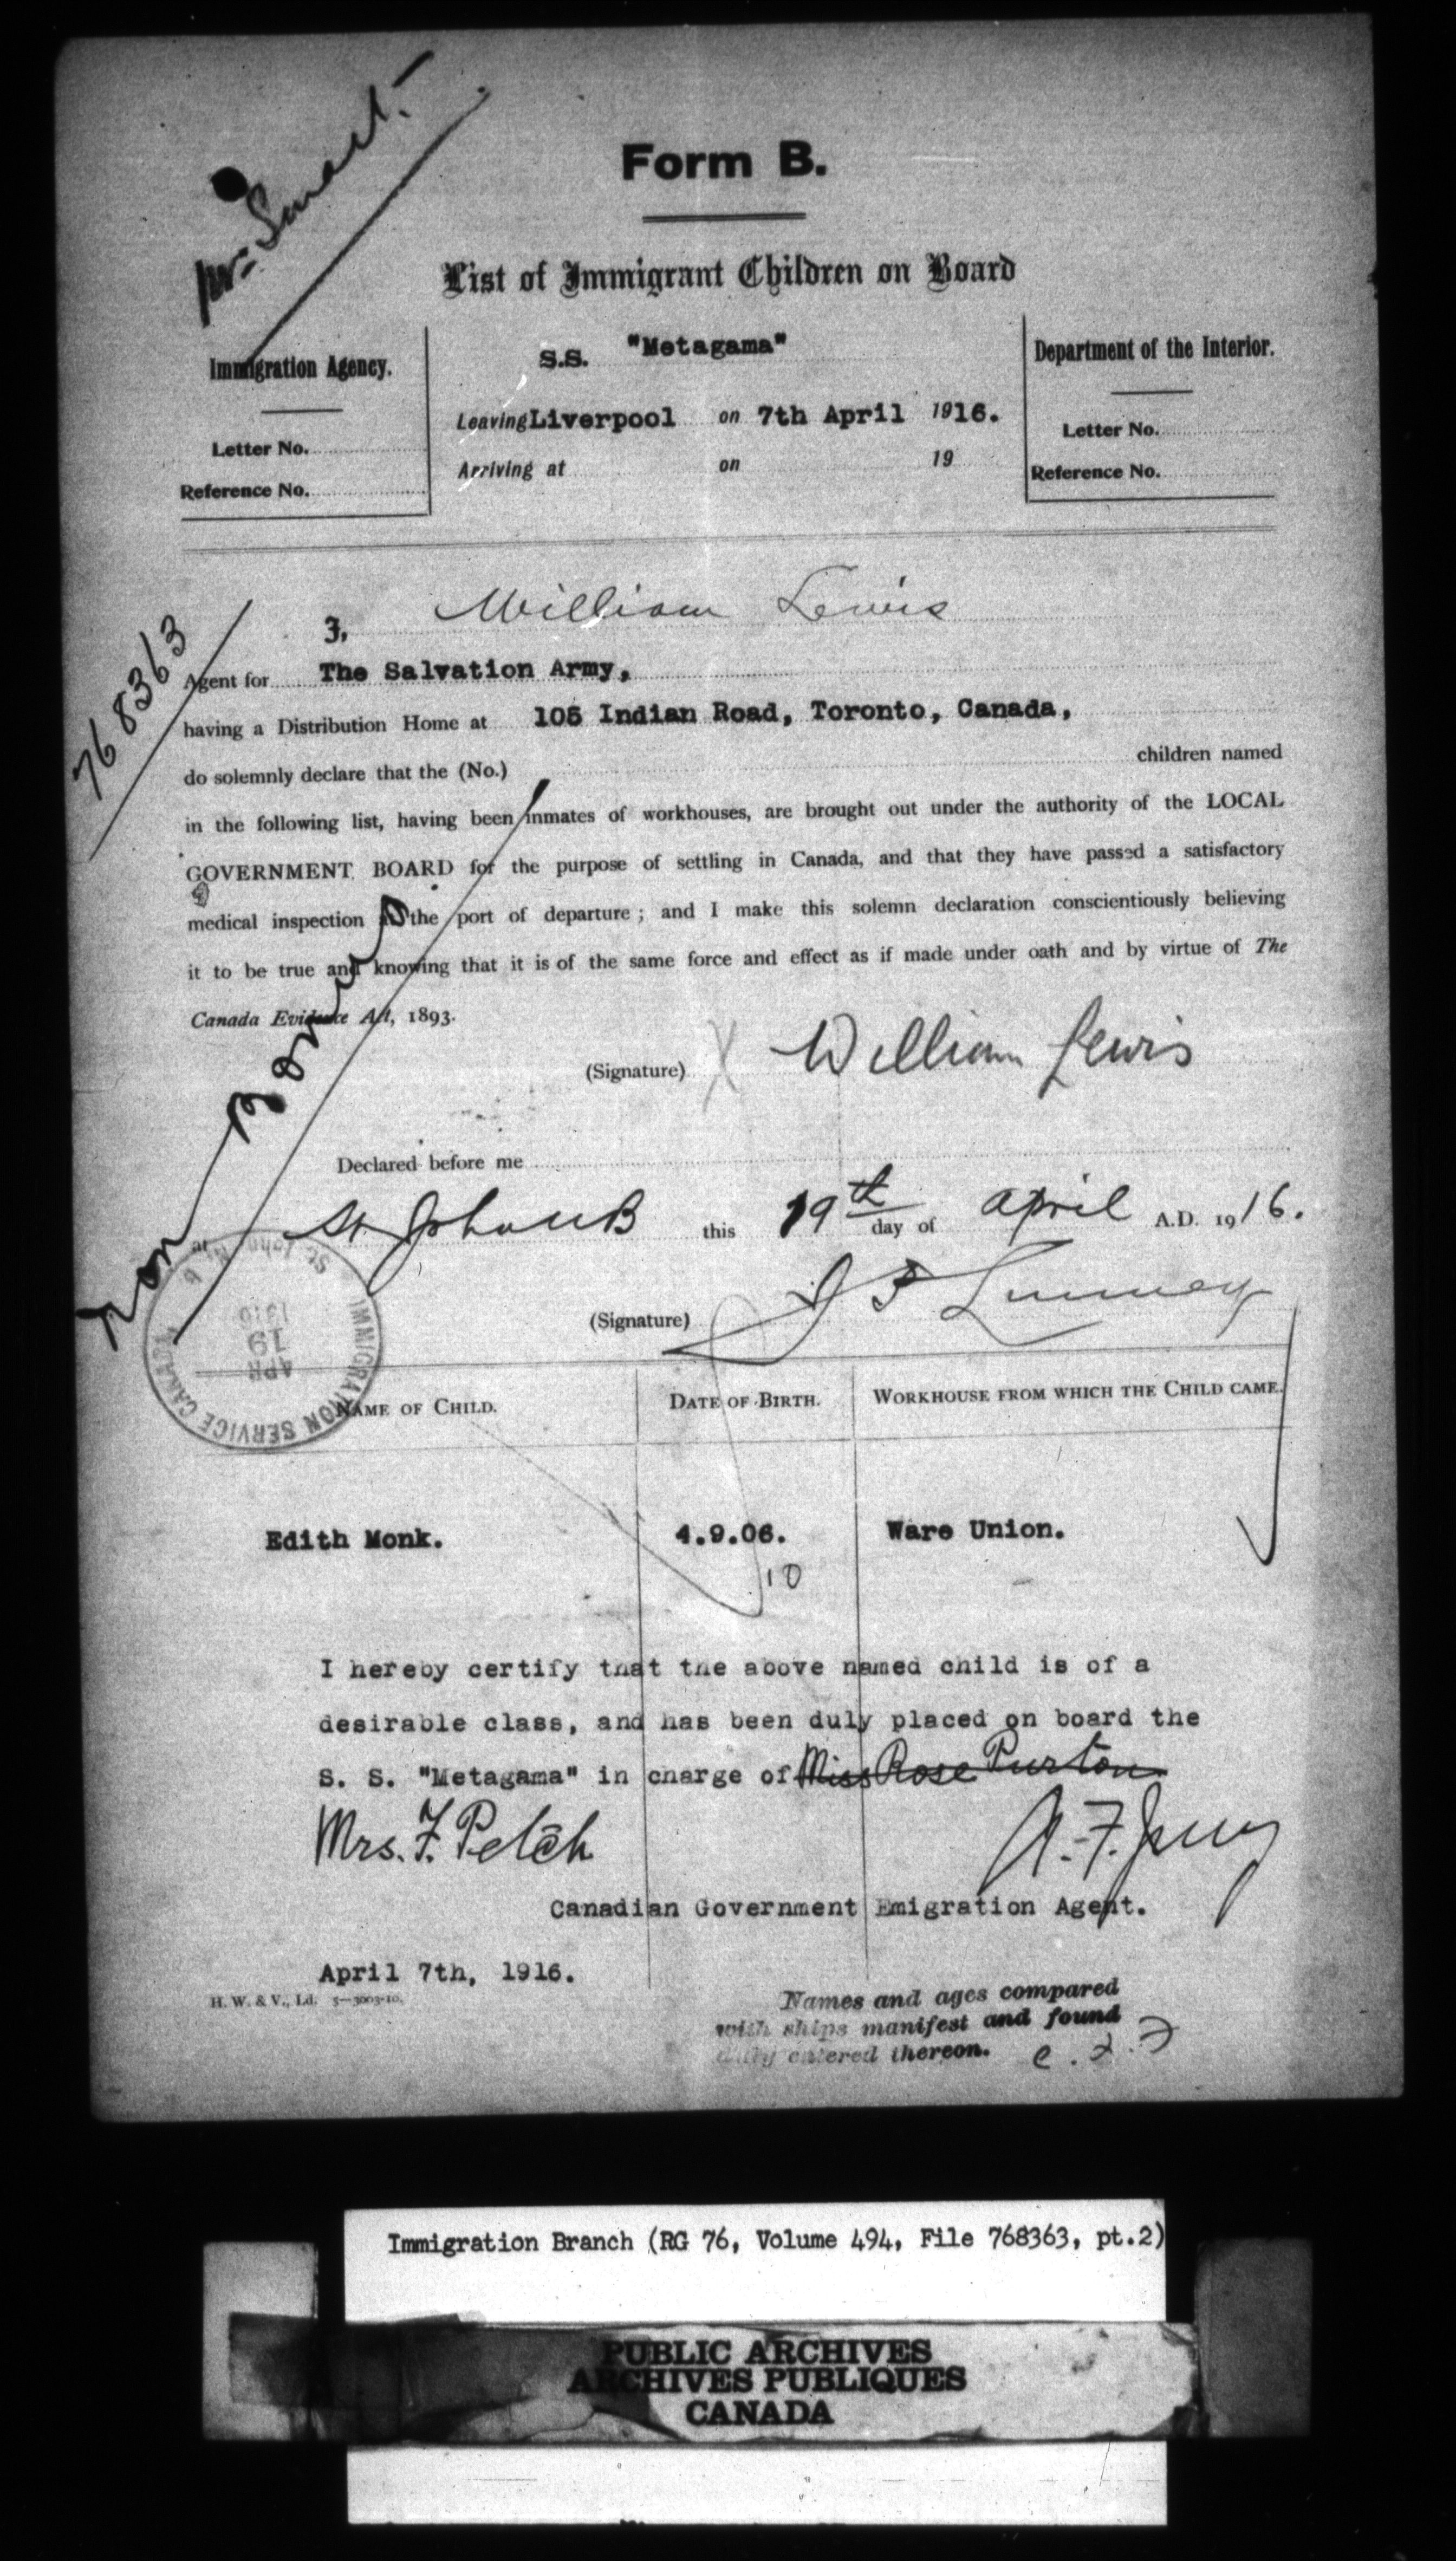 Mr. Smart.
Form B.
List of Immigrant Children on Board
Immigration Agency.
Letter No.
Reference No.
S.S. "Metagama"
Leaving Liverpool on 7th April 1916.
Arriving at on 19
Department of the Interior.
Letter No.
Reference No.
768363
I, William Lewis
Agent for The Salvation Army,
having a Distribution Home at 105 Indian Road, Toronto, Canada,
do solemnly declare that the (No.) children named
in the following list, having been inmates of workhouses, are brought out under the authority of the LOCAL
GOVERNMENT BOARD for the purpose of settling in Canada, and that they have passed a satisfactory
medical inspection at the port of departure; and I make this solemn declaration conscientiously believing
it to be true and knowing that it is of the same force and effect as if made under oath and by virtue of The
Canada Evidence Act, 1893.
(Signature) X William Lewis
Declared before me
at St John NB this 19th day of April A.D. 1916.
(Signature)
IMMIGRATION SERVICE CANADA
APR
19
1916
St. John N. B
NAME OF CHILD. DATE OF BIRTH. WORKHOUSE FROM WHICH THE CHILD CAME.
Edith Monk. 4.9.06. Ware Union.
10
I hereby certify that the above named child is of a
desirable class, and has been duly placed on board the
S. S. "Metagama" in charge of Miss Rose Purton
Mrs. F. Petch
Canadian Government Emigration Agent.
April 7th, 1916.
H. W. & V., Ld. 5—3003-10.
Names and ages compared
with ships manifest and found
duly entered thereon.
Immigration Branch (RG 76, Volume 494, File 768363, pt.2)
PUBLIC ARCHIVES
ARCHIVES PUBLIQUES
CANADA